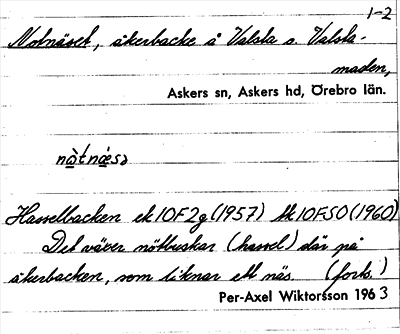 1-2
Notnäset, åkerbacke å Valsta o. Valsta-
maden,
Askers sn, Askers hd, Örebro län.
nòtnæ̀sə
Hasselbacken ek 10F2g (1957) tk 10F50 (1960)
Det växer nötbuskar (hassel) där på
åkerbacken, som liknar ett näs. (forts.)
Per-Axel Wiktorsson 1963